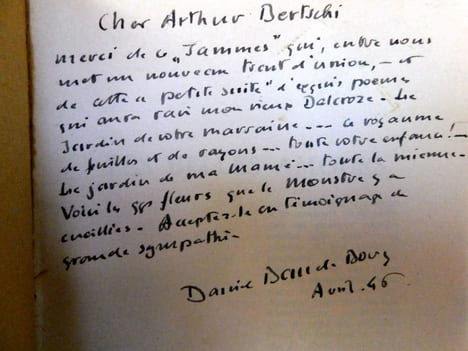 Cher Arthur Bertschi
merci de ce „Jammes" qui, entre nous
met un nouveau trait d'union, – et
de cette « petite suite" d'exquis poèmes
qui aura ravi mon vieux Dalcroze. Le
Jardin de votre marraine --- ce royaume
de feuilles et de rayons --- toute votre enfance! –
Le jardin de ma Mami --- toute la mienne.
Voici les fleurs que le monstre y a
cueillies. Acceptez-le en témoignage de
grande sympathie
Daniel Baud-Bovy
Avril. 46